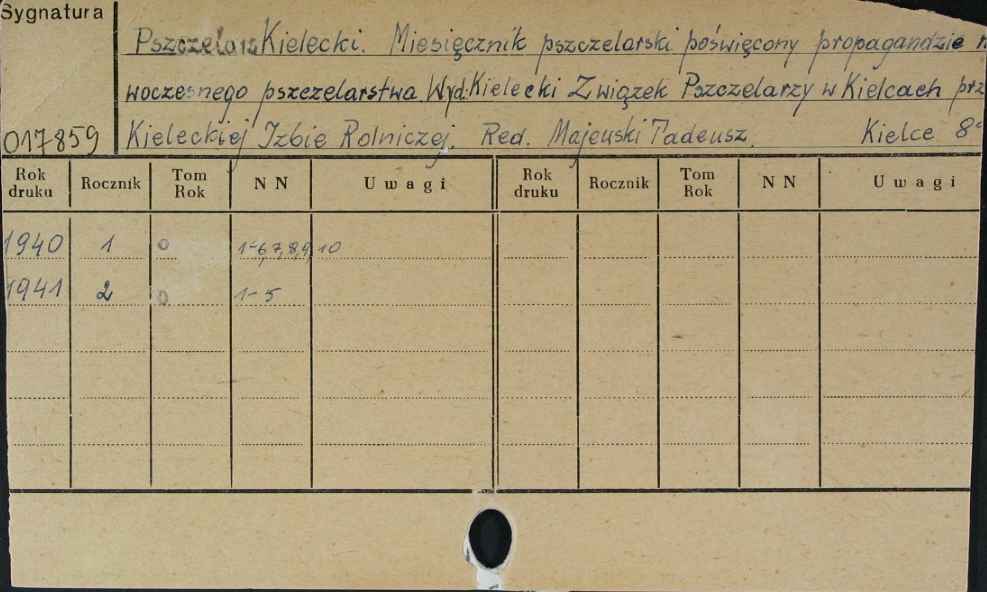 Sygnatura
Pszczelarz Kielecki. Miesięcznik pszczelarski poświęcony propagandzie n
woczesnego pszczelarstwa Wyd. Kielecki Związek Pszczelarzy w Kielcach prz
017859 Kieleckiej Izbie Rolniczej. Red. Majewski Tadeusz. Kielce 8°
Rok druku Rocznik Tom Rok NN Uwagi Rok druku Rocznik Tom Rok NN Uwagi
1940 1 0 1-6,7,8,9,10
1941 2 0 1-5